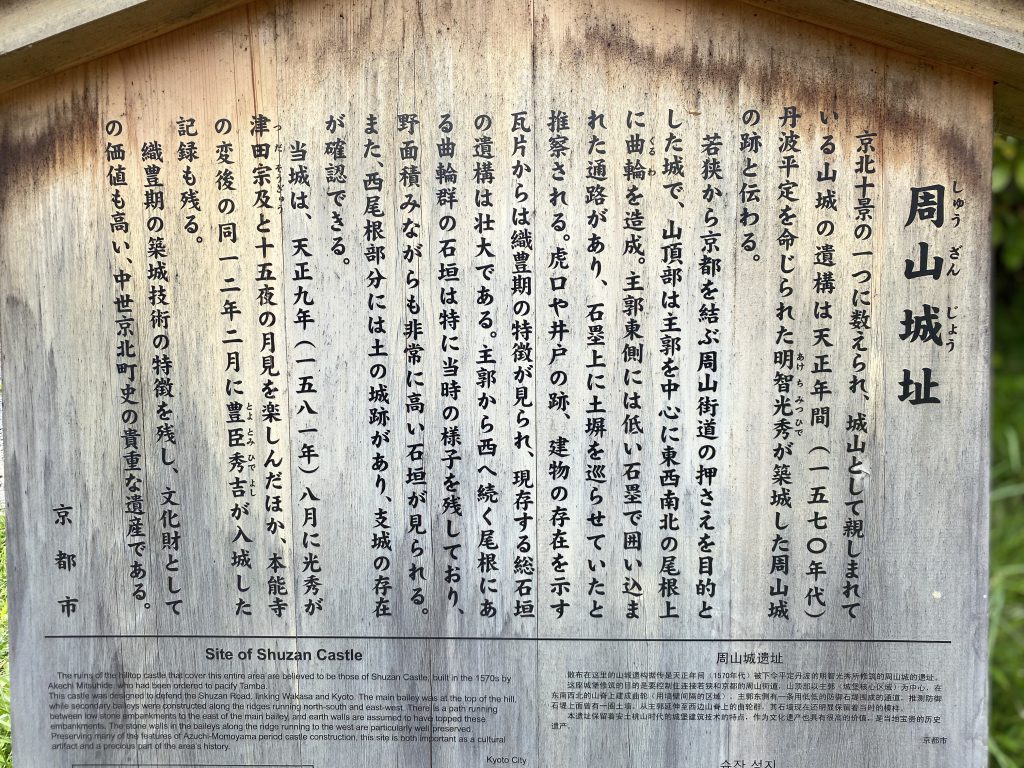 周山城址
しゅうざんじょう
京北十景の一つに数えられ、城山として親しまれて
いる山城の遺構は天正年間（一五七〇年代）
丹波平定を命じられた明智光秀が築城した周山城
あけちみつひで
の跡と伝わる。
若狭から京都を結ぶ周山街道の押さえを目的と
した城で、山頂部は主郭を中心に東西南北の尾根上
に曲輪を造成。主郭東側には低い石塁で囲い込ま
くるわ
れた通路があり、石塁上に土塀を巡らせていたと
推察される。虎口や井戸の跡、建物の存在を示す
瓦片からは織豊期の特徴が見られ、現存する総石垣
の遺構は壮大である。主郭から西へ続く尾根にあ
る曲輪群の石垣は特に当時の様子を残しており、
野面積みながらも非常に高い石垣が見られる。
また、西尾根部分には土の城跡があり、支城の存在
が確認できる。
当城は、天正九年（一五八一年）八月に光秀が
津田宗及と十五夜の月見を楽しんだほか、本能寺
つだそうぎゅう
の変後の同一二年二月に豊臣秀吉が入城した
とよとみひでよし
記録も残る。
織豊期の築城技術の特徴を残し、文化財として
の価値も高い、中世京北町史の貴重な遺産である。
京都市
Site of Shuzan Castle
The ruins of the hilltop castle that cover this entire area are believed to be those of Shuzan Castle, built in the 1570s by
Akechi Mitsuhide, who had been ordered to pacify Tamba.
This castle was designed to defend the Shuzan Road, linking Wakasa and Kyoto. The main bailey was at the top of the hill,
while secondary baileys were constructed along the ridges running north-south and east-west. There is a path running
between low stone embankments to the east of the main bailey, and earth walls are assumed to have topped these
embankments. The stone walls in the baileys along the ridge running to the west are particularly well preserved.
Preserving many of the features of Azuchi-Momoyama period castle construction, this site is both important as a cultural
artifact and a precious part of the area's history.
Kyoto City
周山城遗址
散布在这里的山城遗构据传是天正年间（1570年代）被下令平定丹波的明智光秀所修筑的周山城的遗址。
这座城堡修筑的目的是要控制连接若狭和京都的周山街道，山顶部以主郭（城堡核心区域）为中心，在
东南西北的山脊上建成曲轮（用墙壁所隔的区域）。主郭东侧有一条用低的石堤围成的通道，推测防御
石堤上面曾有一圈土墙。从主郭延伸至西边山脊上的曲轮群，其石墙现在还明显保留着当时的模样。
本遗址保留着安土桃山时代的城堡建筑技术的特点，作为文化遗产也具有很高的价值，是当地宝贵的历史
遗产。
京都市
슈잔 성지